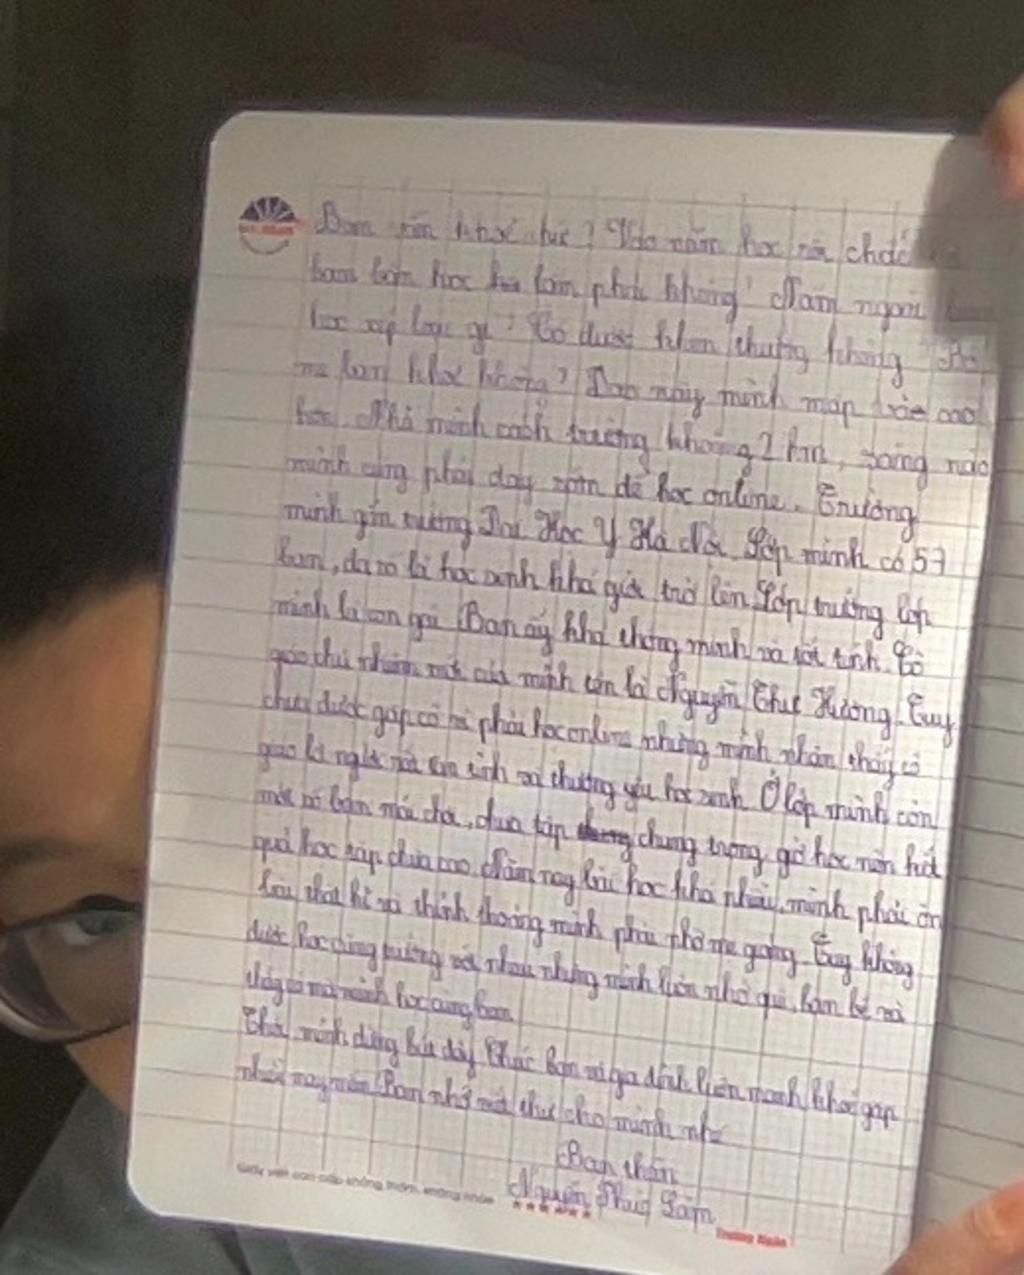 Bạn vẫn khoẻ chứ? Vào năm học rồi chắc
bạn bận học bài lắm phải không? Năm ngoái
học xếp loại gì? Có được khen thưởng không?
mẹ bạn khoẻ không? Dạo này mình mập và cao
hơn. Nhà mình cách trường khoảng 2 km, sáng nào
mình cũng phải dạy sớm để học online. Trường
mình gần trường Đại Học Y Hà Nội. Lớp mình có 57
bạn, đa số là học sinh khá giỏi trở lên. Lớp trưởng lớp
mình là con gái. Bạn ấy khá thông minh và tính. Cô
giáo chủ nhiệm mới của mình tên là Nguyễn Hương. Tuy
chưa được gặp cô vì phải học online nhưng mình nhận thấy cô
giáo là người rất và thương yêu học sinh. Ở lớp mình còn
một số bạn mải chơi, chưa tập chung trong giờ học nên kết
quả học tập chưa cao. Năm nay bài học khá nhiều, mình phải ôn
bài thật kĩ và thỉnh thoảng mình phải nhờ mẹ giảng. Tuy không
được học cùng trường với nhau nhưng mình luôn nhớ bạn bè và
thầy cô mà mình học cùng bạn.
Thôi, mình dừng bút đây. Chúc bạn và gia đình luôn mạnh khoẻ gặp
nhiều may mắn. Bạn nhớ viết thư cho mình nhé
Bạn thân
Nguyễn Phúc Lâm
Trường Ngân